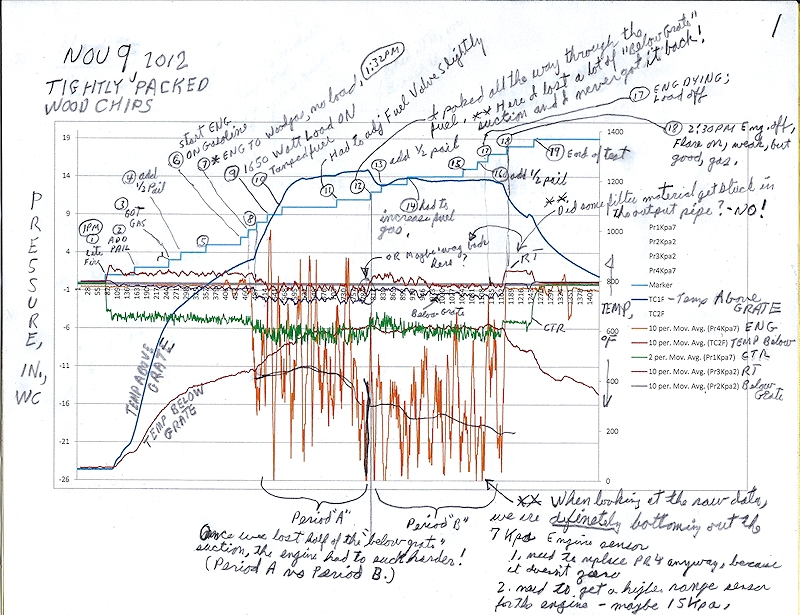 NOV 9, 2012
TIGHTLY PACKED
WOOD CHIPS
1
1:32PM
start ENG
6 on Gasoline
7 * ENG TO Woodgas, no load,
9 1650 Watt Load ON
10 Tamped fuel
Had to adj Fuel Valve Slightly
I poked all the way through the
fuel. ** Here I lost a lot of "Below Grate"
suction and I never got it back!
17 ENG DYING;
Load off
18 2:30PM Eng. off,
Flare on, weak, but
good, gas.
4 add
1/2 Pail
3 GOT
GAS
1PM
1 Lite
Fire
2 ADD
PAIL
5
8
11
12
13 add 1/2 pail
14 had to
increase fuel
gas.
15
17
18
16 add 1/2 pail
19 End of test
**
Did some filter material get stuck in
the output pipe? - NO!
OR Maybe way back
here?
RT
Below Grate
CTR
PRESSURE, IN., WC
TEMP, °F
TEMP ABOVE
GRATE
TEMP BELOW
GRATE
19
14
9
4
-1
-6
-11
-16
-21
-26
1400
1200
1000
800
600
400
200
0
Pr1Kpa7
Pr2Kpa2
Pr3Kpa2
Pr4Kpa7
Marker
TC1F - Temp Above
GRATE
TC2F
10 per. Mov. Avg. (Pr4Kpa7) ENG
10 per. Mov. Avg. (TC2F) TEMP Below
2 per. Mov. Avg. (Pr1Kpa7) CTR
10 per. Mov. Avg. (Pr3Kpa2) RT
10 per. Mov. Avg. (Pr2Kpa2) Below
Grate
Period "A"
Period "B"
Once we lost half of the "below grate"
suction, the engine had to suck harder!
(Period A vs Period B.)
** When looking at the raw data,
we are definetely bottoming out the
7 Kpa Engine sensor
1. need to replace PR4 anyway, because
it doesn't zero
2. need to get a higher range sensor
for the engine - maybe 15 Kpa.